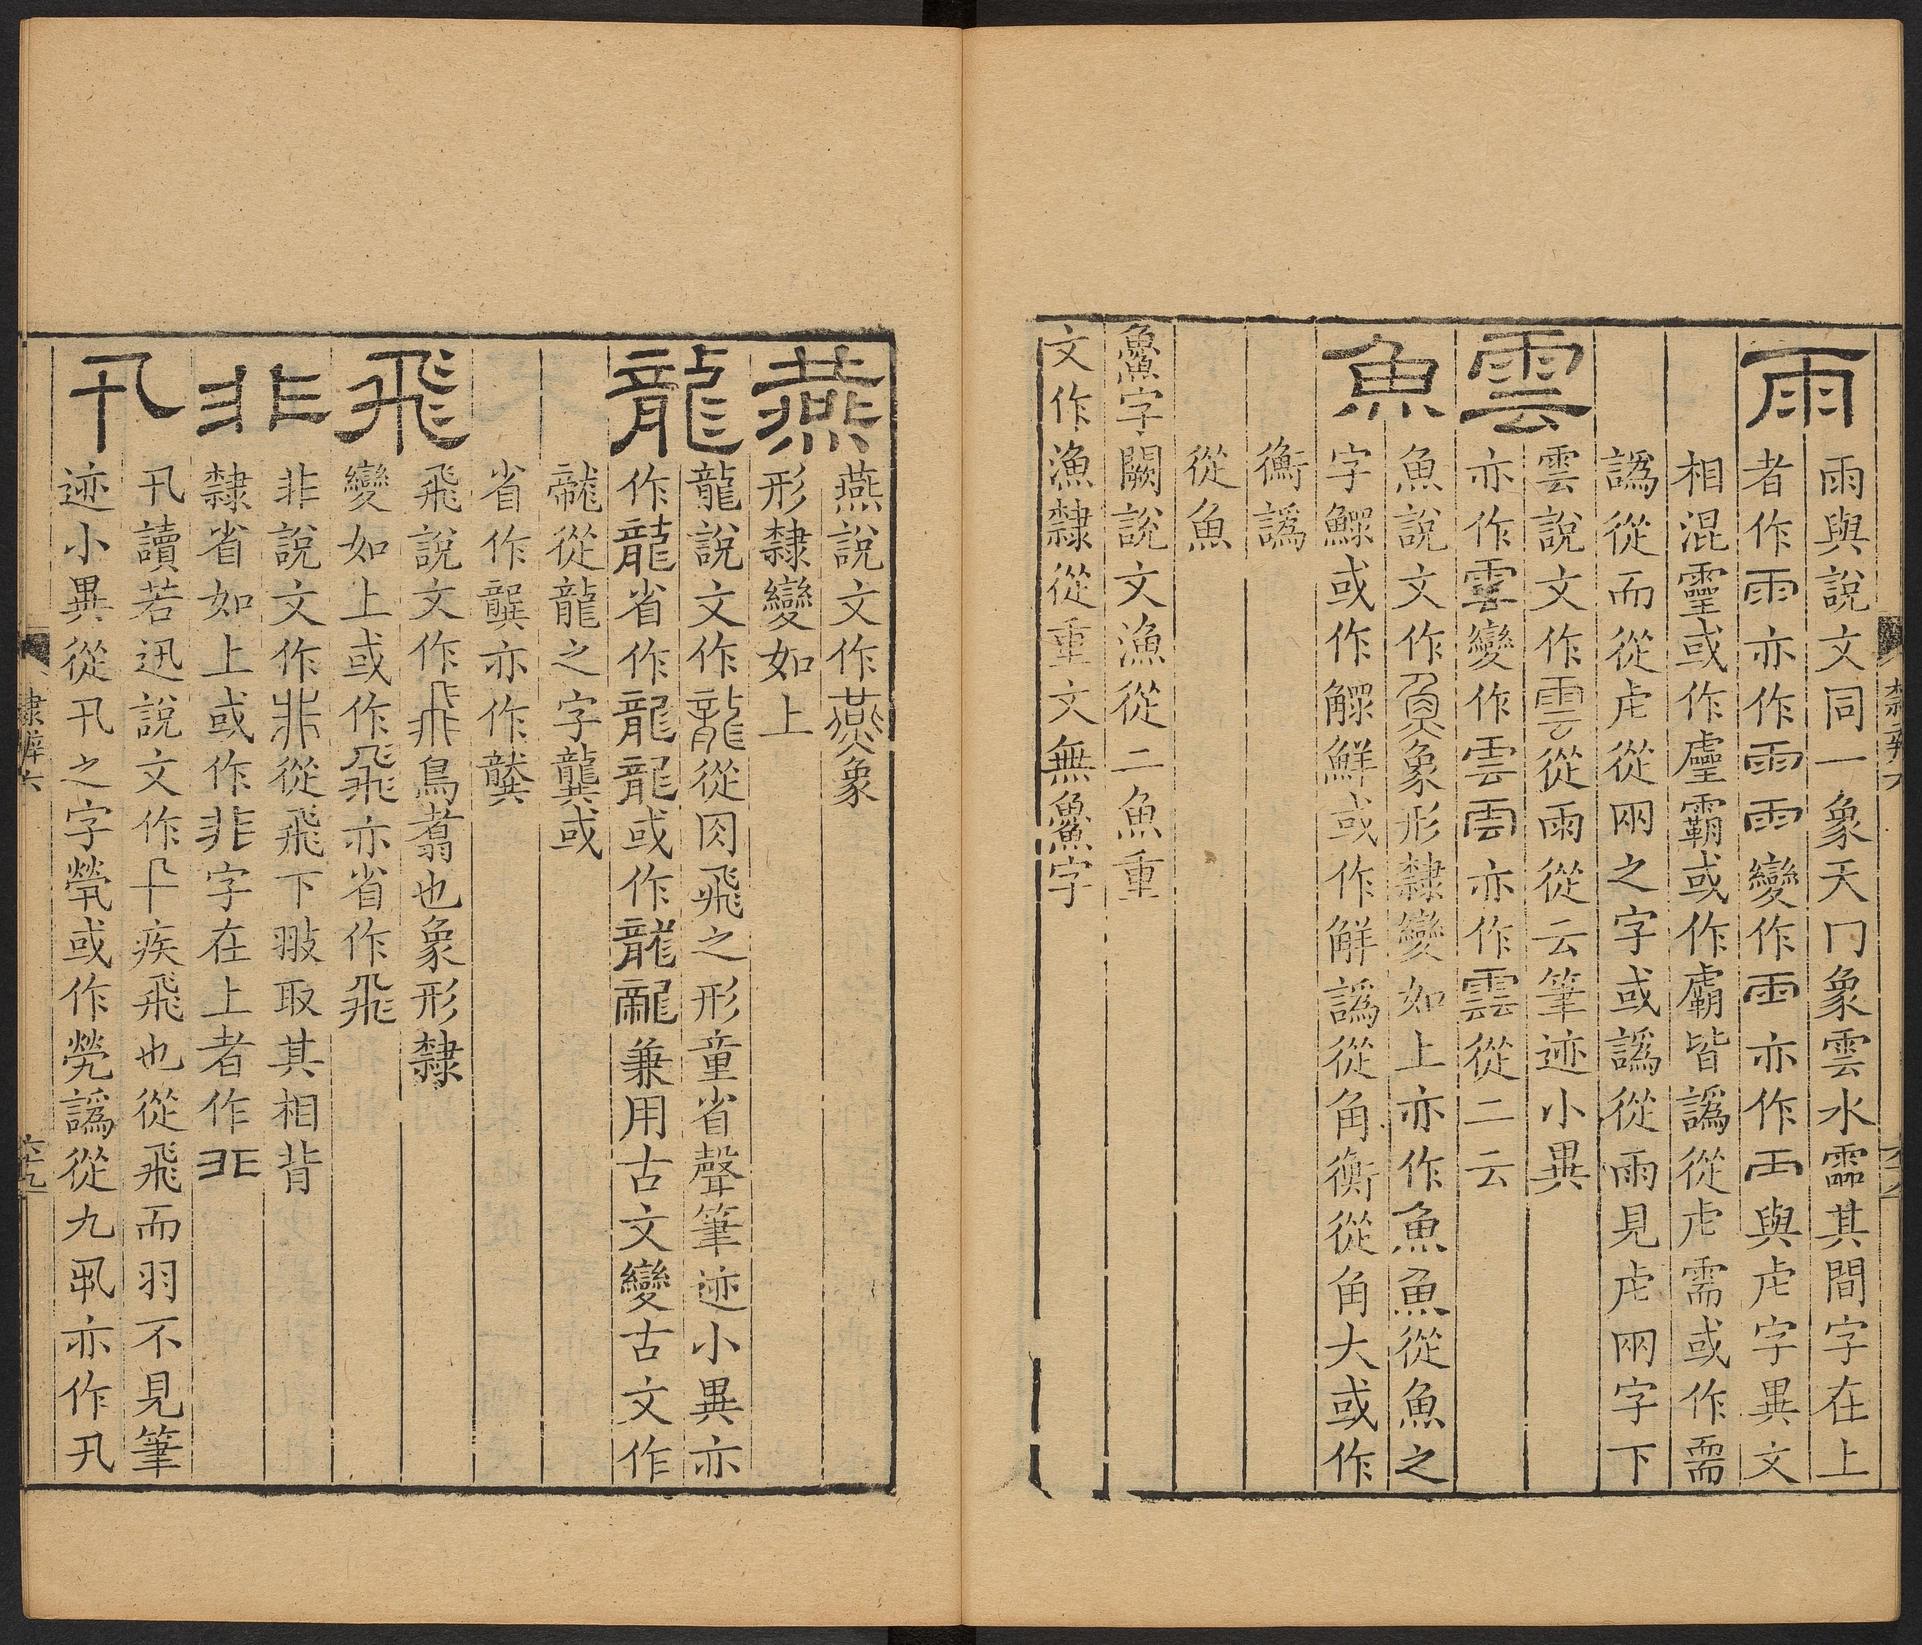 雨
雨與說文同一象天冂象雲水霝其間字在上
者作雨亦作雨雨變作雨亦作雨與虍字異文
相混靈或作霻霸或作虜皆譌從虍需或作
譌從而從虍從网之字或譌從雨見虍网字下
雲
雲說文作雲從雨從云筆迹小異
亦作雲變作雲雲亦作雲從二云
魚
魚說文作𩵋象形隸變如上亦作魚魚從魚之
字鰥或作鰥鮮或作觧譌從角衡從角大或作
衡譌
從魚
𩺰字闕說文漁從二魚重
文作漁隸從重文無𩺰字
燕
燕說文作燕象
形隸變如上
龍
龍說文作龍從肉飛之形童省聲筆迹小異亦
作龍省作龍龍或作龍龗兼用古文變古文作
從龍之字龔或
省作龔亦作龔
飛
飛說文作飛鳥翥也象形隸
變如上或作飛亦省作飛
非
非說文作非從飛下翄取其相背
隸省如上或作非字在上者作非
卂
卂讀若迅說文作卂疾飛也從飛而羽不見筆
迹小異從卂之字煢或作㷀譌從九虱亦作卂
隸辨六
六十九